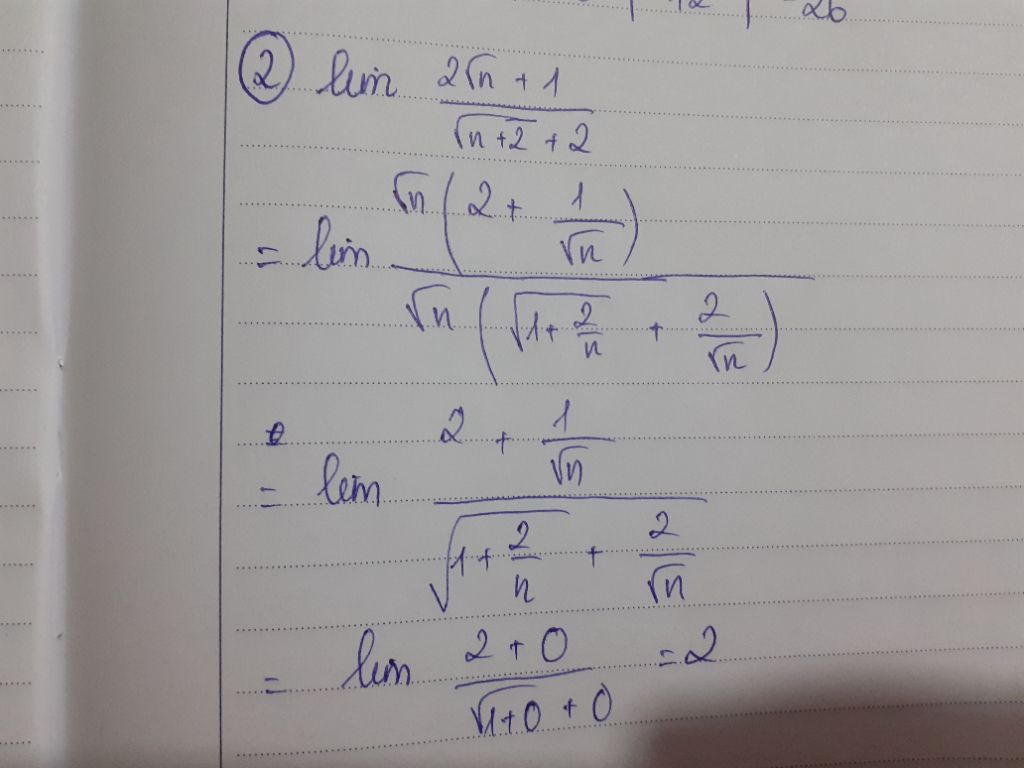 12 | -26
② lim (2√n + 1)/(√(n+2) + 2)
= lim (√n (2 + 1/√n))/(√n (√(1+2/n) + 2/√n))
= lim (2 + 1/√n)/(√(1+2/n) + 2/√n)
= lim (2+0)/(√(1+0) + 0) = 2